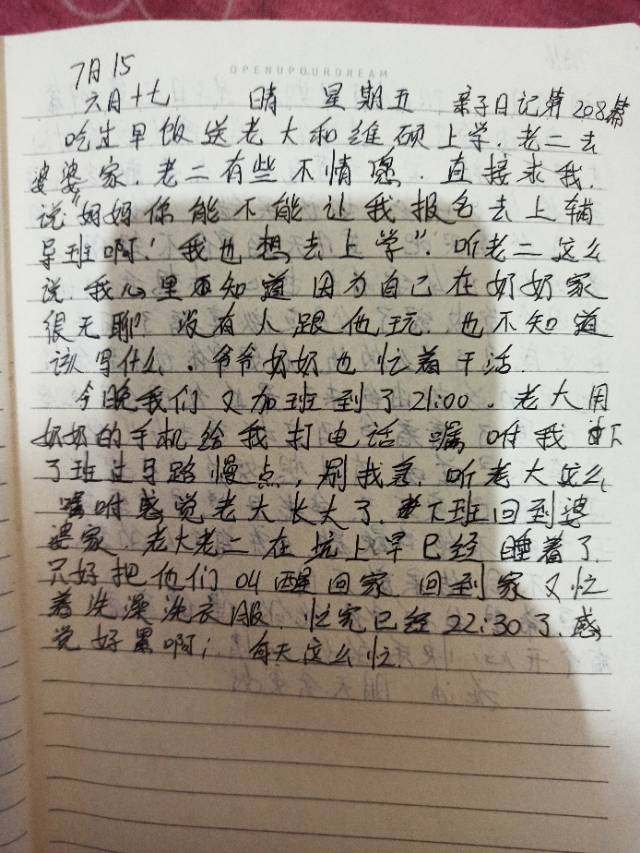 OPENUPOURDREAM
7月15
六月十七 晴 星期五 亲子日记第208篇
吃过早饭送老大和维硕上学.老二去
婆婆家.老二有些不情愿.直接求我.
说"妈妈你能不能让我报名去上辅
导班啊!我也想去上学".听老二这么
说.我心里知道因为自己在奶奶家
很无聊.没有人跟他玩.也不知道
该写什么.爷爷奶奶也忙着干活.
今晚我们又加班到了21:00.老大用
奶奶的手机给我打电话嘱咐我下
了班过马路慢点,别着急.听老大这么
嘱咐感觉老大长大了.下班回到婆
婆家.老大老二在炕上早已经睡着了.
只好把他们叫醒回家 回到家又忙
着洗澡洗衣服.忙完已经22:30了.感
觉好累啊;每天这么忙.